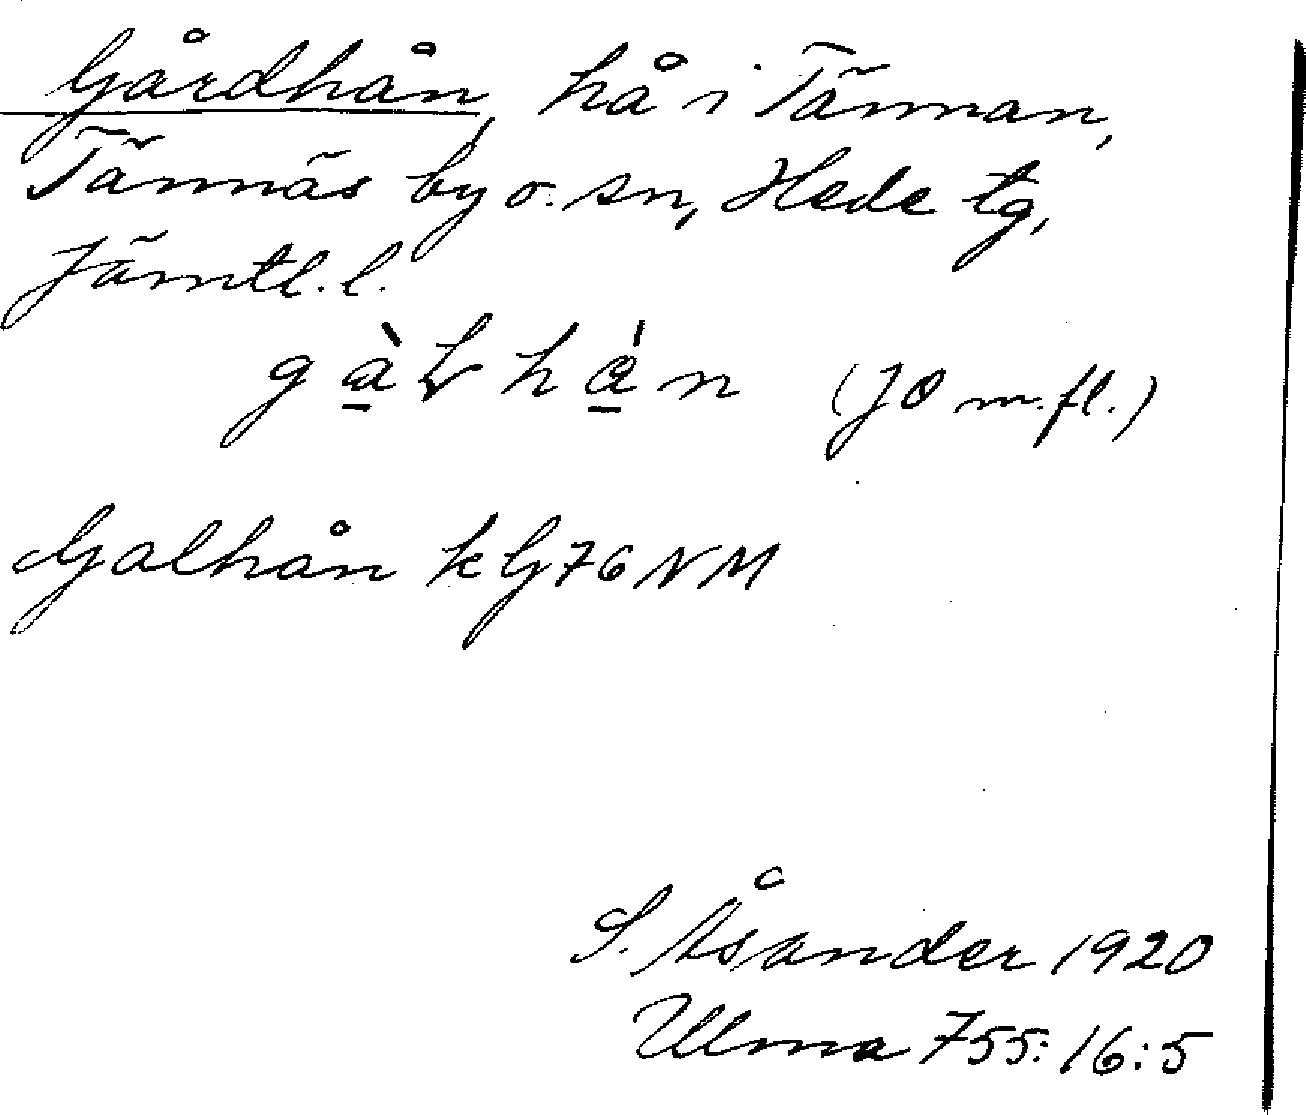 Gårdhån, hå i Tännan,
Tännäs by o. sn, Hede tg,
Jämtl. l.
(JO m.fl.)
Galhån kG76NM
S. Åsander 1920
Ulma 755:16:5